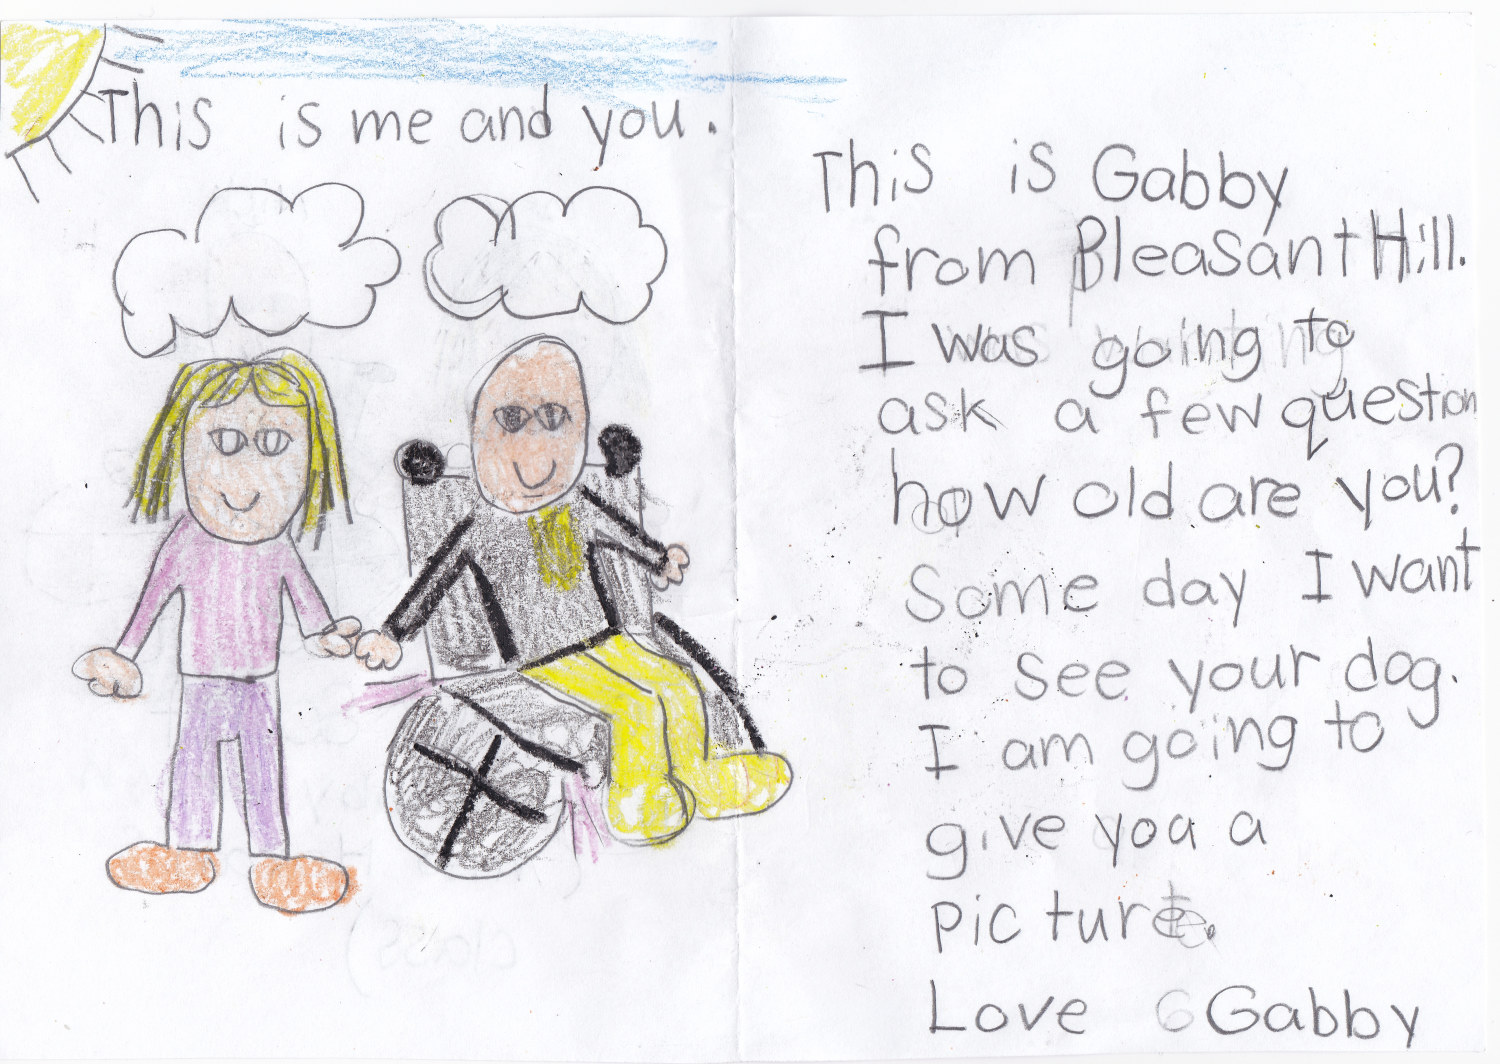 This is me and you.
This is Gabby
from Pleasant Hill.
I was going to
ask a few question
how old are you?
Some day I want
to see your dog.
I am going to
give you a
picture.
Love Gabby